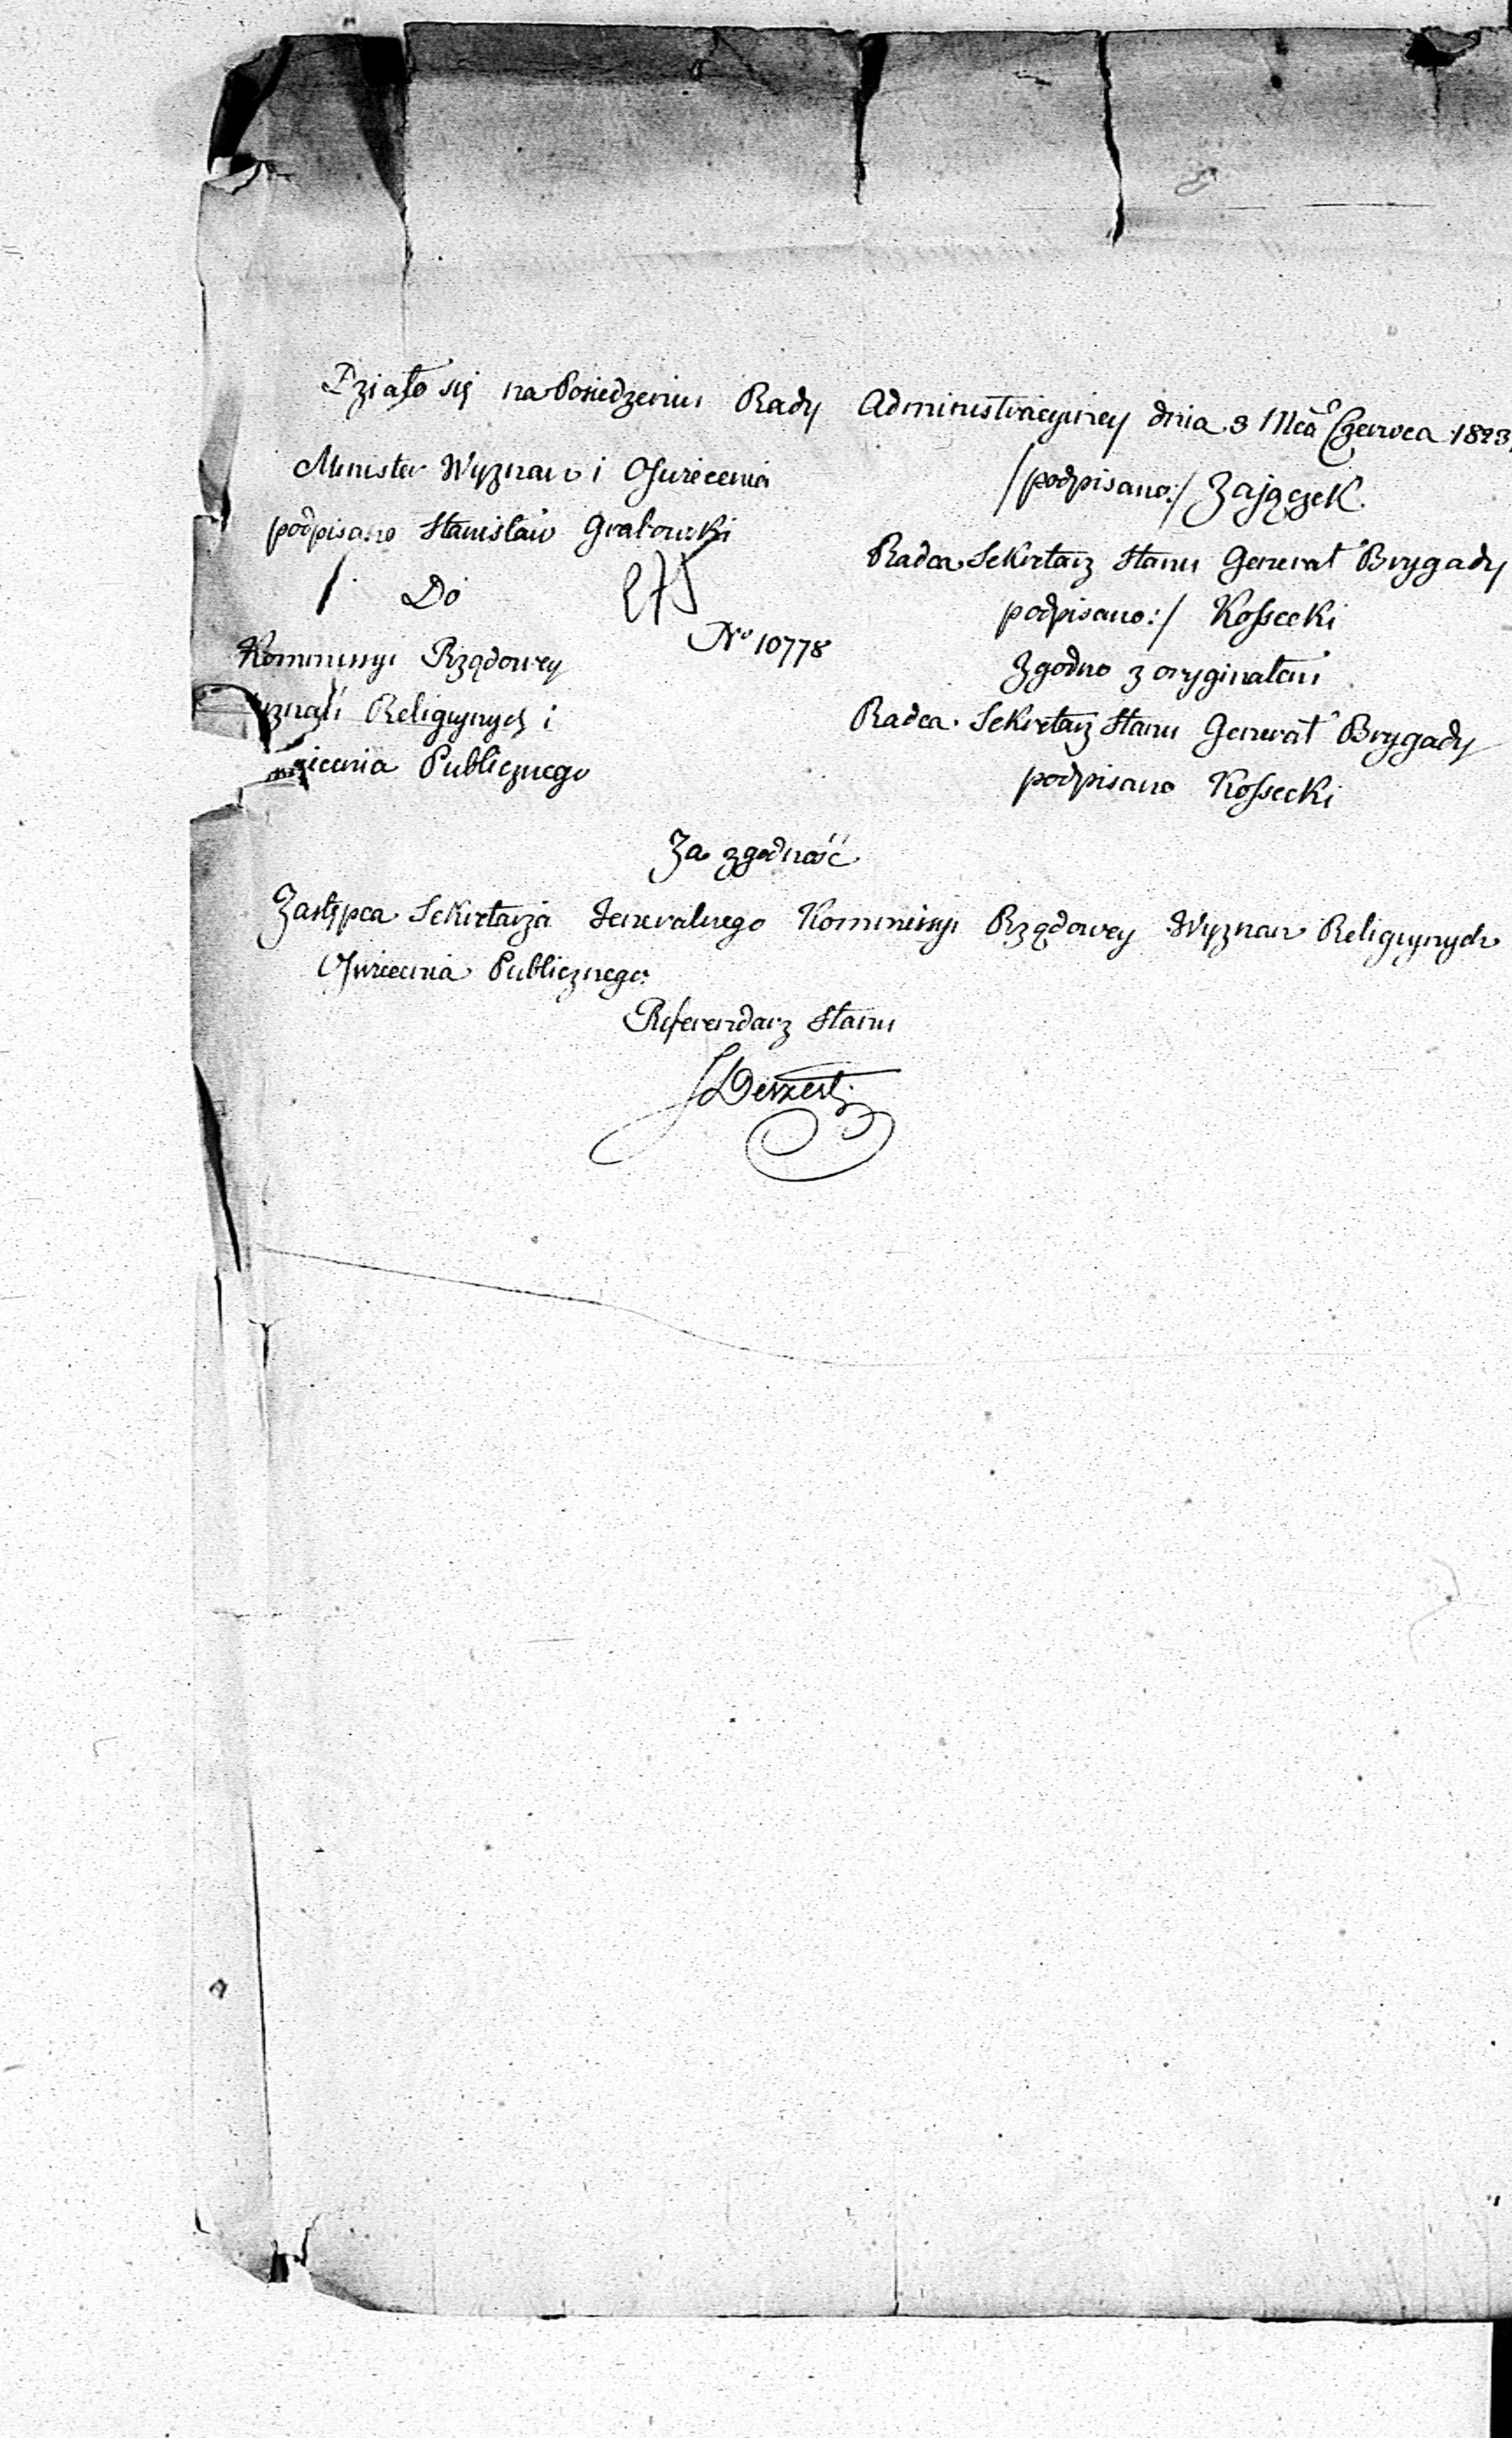 Działo się na Posiedzeniu Rady Administracyiney dnia 3 Mca Czerwca 1823
Minister Wyznań i Oświecenia
podpisano Stanisław Grabowski
/podpisano:/ Zajączek
Radca Sekretarz Stanu Generał Brygady
podpisano:/ Kossecki
Zgodno z oryginałem
Radca Sekretarz Stanu Generał Brygady
podpisano Kossecki
275
Do
No 10778
Kommissyi Rządowey
yznań Religiynych i
iecenia Publicznego
Za zgodność
Zastępca Sekretarza Jeneralnego Kommissyi Rządowey Wyznań Religiynych
Oświecenia Publicznego
Referendarz Stanu